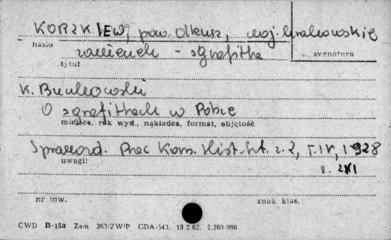 KORZKIEW, pow. Olkusz, woj. krakowskie
hasło
zamienek - sgrafitta
sygnatura
tytuł
K. Buczkowski
O sgrafittach w Polsce
miejsce, rok wyd., nakładca, format, objętość
Sprawozd. Prac Kom. Hist. Szt. z. 2, T. IV, 1928
uwagi:
s. XVI
nr inw.
znak klas.
CWD B-15a Zam 363/Z W/P GDA-543. 19.2.62. 2.260.000.